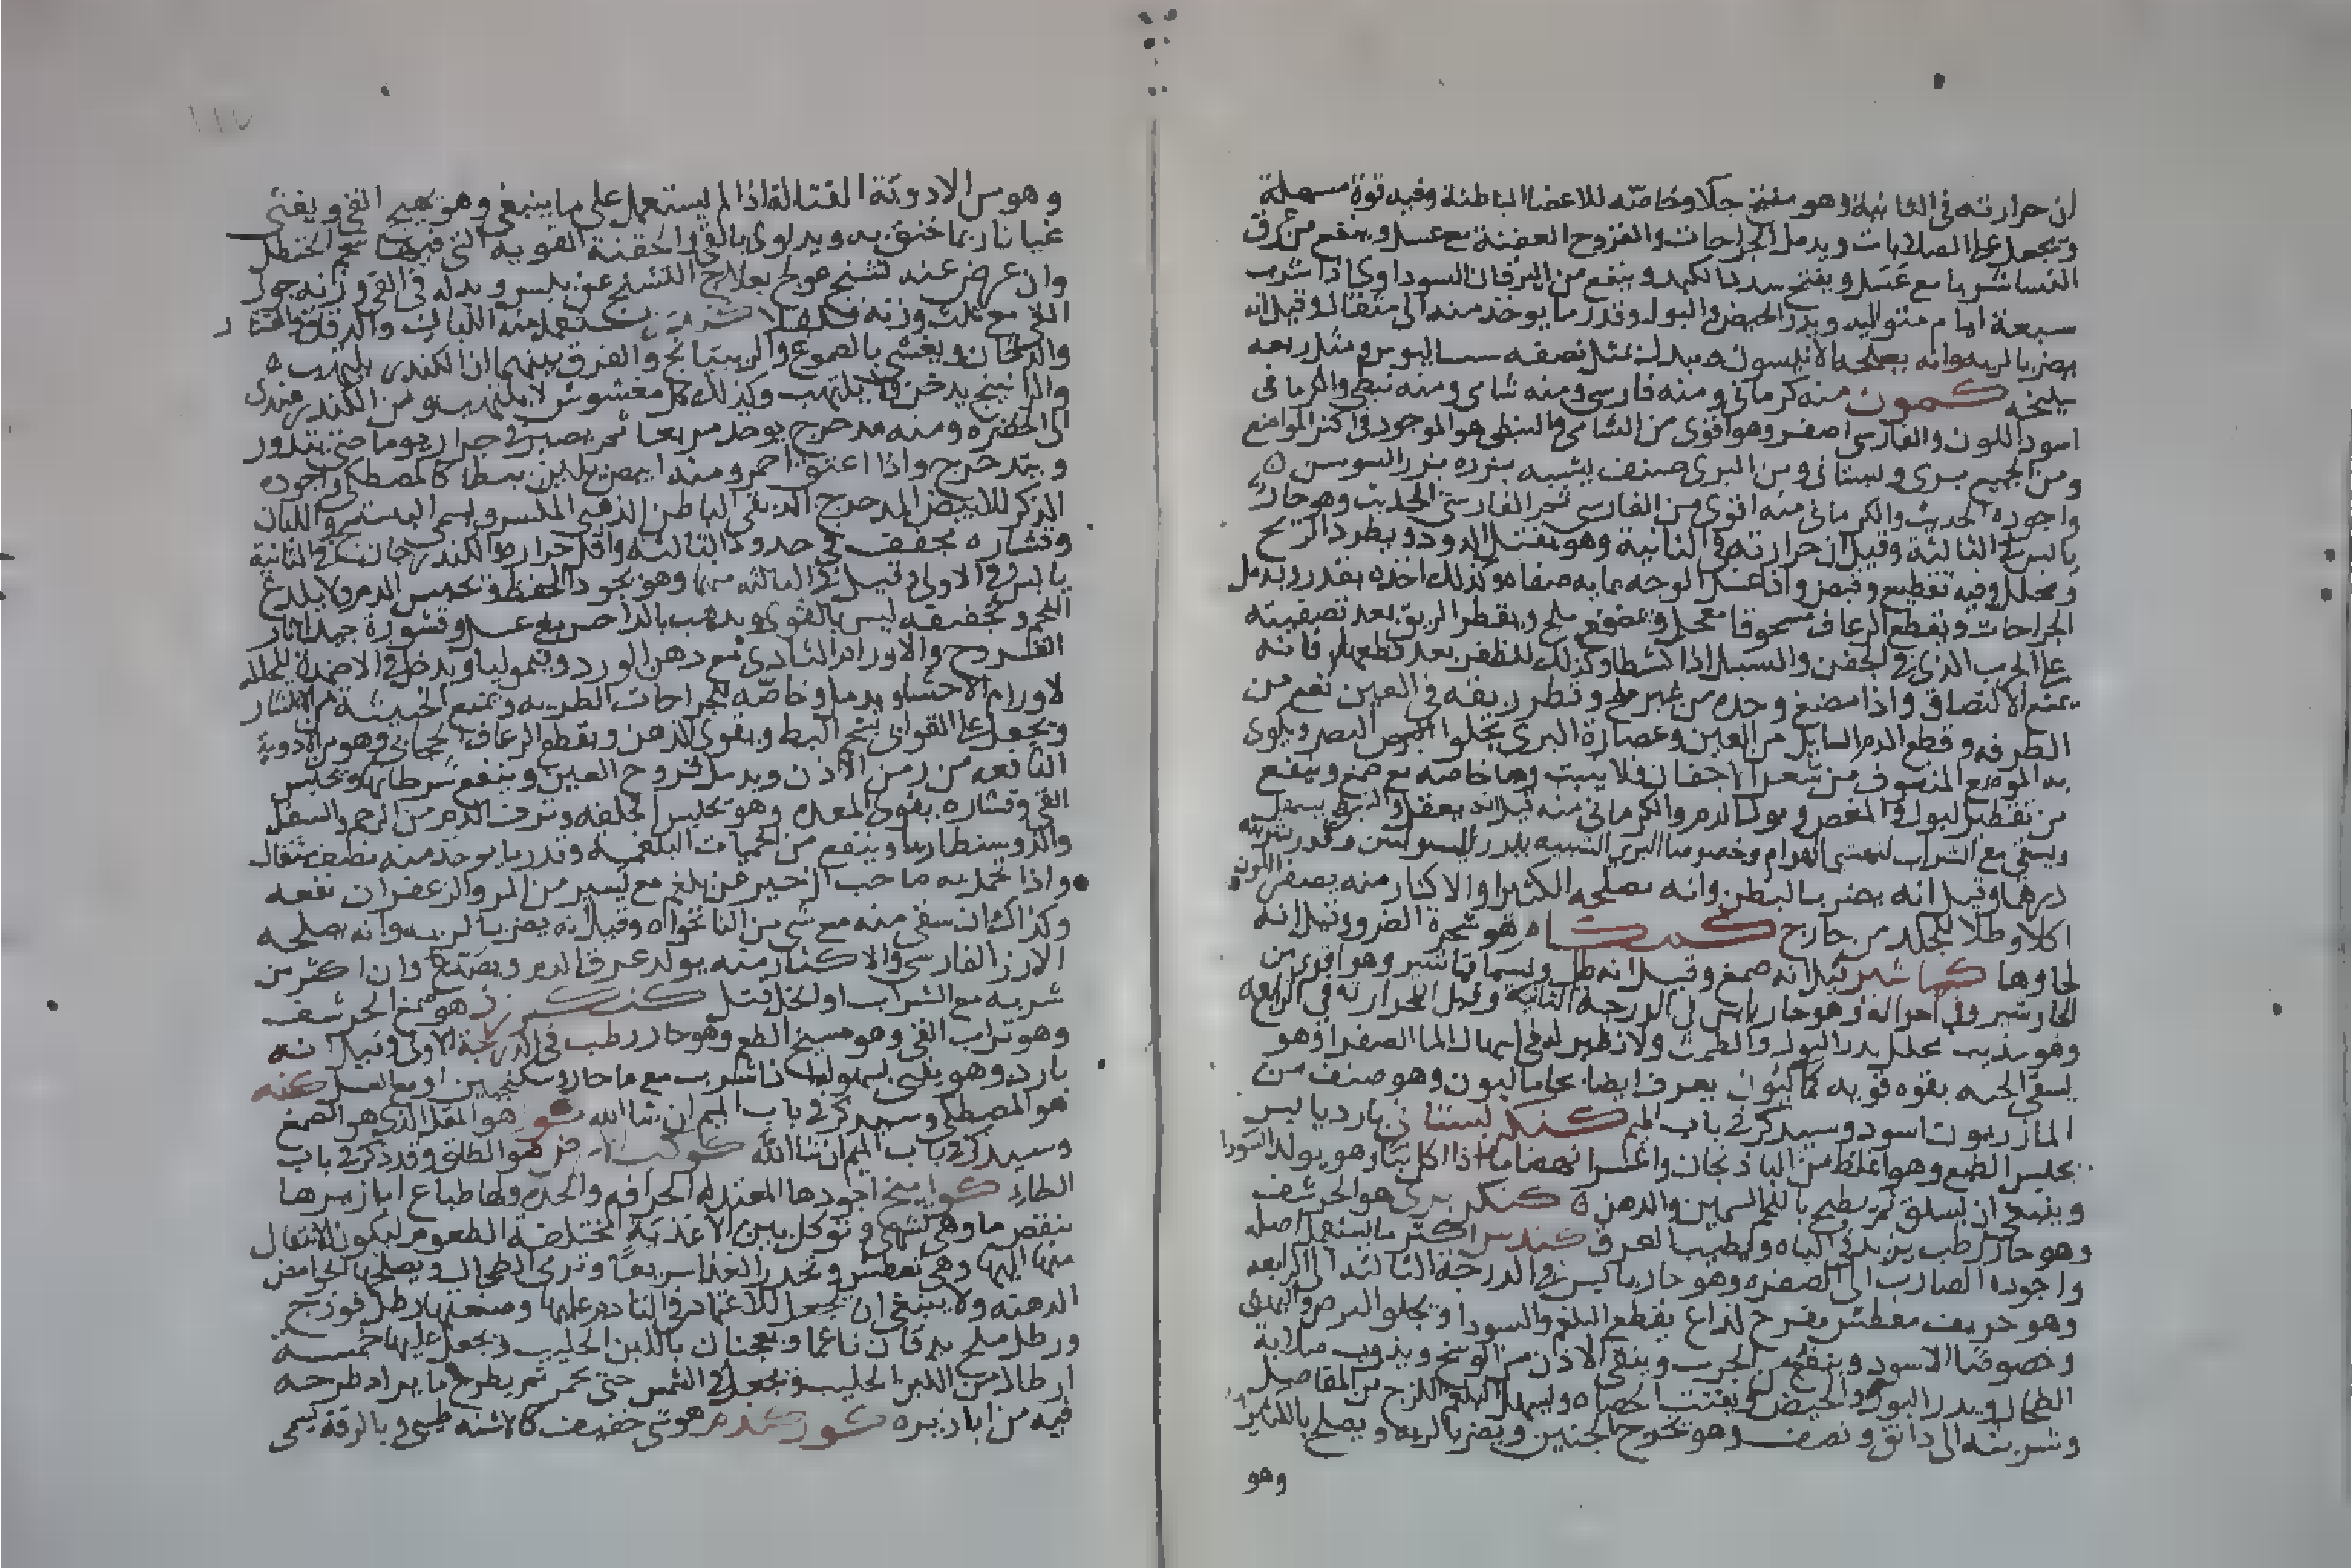 ان حرارته في الثانية وهو مفتح جلا وخاصته للاعضا الباطنة وفيه قوة مسهلة
وتجعل على الصلابات ويدمل الجراحات والقروح العفنة مع عسل وينفع من عرق
النسا شربا مع عسل ويفتح سدد الكبد وينفع من اليرقان السوداوي اذا شرب
سبعة ايام متواليه ويدر الحيض والبول وقدر ما يوخذ منه الى مثقال وقيل انه
يضر بالريه وانه يصلحه الانيسون وبدله مثل نصفه سساليوس ومثل ربعه
سليخه كمون منه كرماني ومنه فارسي ومنه شامي ومنه نبطي والكرماني
اسود اللون والفارسي اصفر وهو اقوى من الشامي والنبطي هو الموجود في اكثر المواضع
ومن الجميع بري وبستاني ومن البري صنف يشبه بزره بزر السوسن
واجوده الحديث والكرماني منه اقوى من الفارسي ثم الفارسي الحديث وهو حار
يابس في الثالثة وقيل ان حرارته في الثانية وهو يقتل الدود ويطرد الريح
ومحلل وفيه تقطيع وقبض واذا غسل الوجه بمايه صفاه وكذلك اخذه بقدر ويدمل
الجراحات ويقطع الرعاف مسحوقا مع خل ويمضغ مع ملح ويقطر الريق بعد تصفيته
على الجرب الذي في الجفن والسبل اذا كشطا وكذلك للظفر بعد قطعها فانه
يمنع الالتصاق واذا مضغ وحده من غير ملح وقطر ريقه في العين نفع من
الطرفه وقطع الدم السايل من العين وعصارة البري يجلو البصر ويلوى
به الموضع المنتوف من شعر الاجفان فلا ينبت وها خاصه مع صمغ وينفع
من تقطير البول والمغص وبول الدم والكرماني منه قيل انه يعقل والنبطي يسهل
ويسقى مع الشراب لنهش الهوام وخصوصا البري الشبيه ببزر السوسن وقدر شربته
درهما وقيل انه يضر بالبطن وانه يصلحه الكثيرا والاكثار منه يصفر اللون
اكلا وطلا للجلد من خارج هو شجرة الضرو وقيل انه
لحاوها كماشير قيل انه صمغ وقيل انه طل ويسما قاشير وهو اقوى من
الجاوشير وفي احواله وهو حار يابس في الدرجة الثانية وقيل ان حرارته في الرابعه
وهو مذيب محلل يدر البول والطمث ولا نظير له في اسهال الما الاصفر وهو
يسقى الجنه بقوه قويه يعرف ايضا بخاماليون وهو صنف من
المازريون اسود وسيذكر في باب الميم كنكر بستاني بارد يابس
يحلبس الطبع وهو اغلظ من الباذنجان واعسر انهضاما اذا اكل نيا وهو يولد السودا
وينبغي ان يسلق ثم يطبخ باللحم السمين والدهن كنكر بري هو الحرشف
وهو حار رطب يزيد في الباه ويطيب العرق كندس اكثر ما يستعمل اصله
واجوده الضارب الى الصفره وهو حار يابس في الدرجة الثالثة الى الرابعه
وهو حريف معطش مقرح لذاع يقطع البلغم والسودا ويجلو البرص والبهق
وخصوصا الاسود وينفع من الجرب وينقي الاذن من الوسخ ويذوب صلابة
الطحال ويدر البول والحيض ويفتت الحصاه ويسهل البلغم اللزج من المفاصيل
وشربته الى دانق ونصف وهو يخرج الجنين ويضر بالريه ويصلح بالكثيرا
وهو
١١٧
وهو من الادوية القتالة اذا لم يستعمل على ما ينبغي وهو يهيج القي ويغثي
غثيانا ربما خنق به ويداوى بالقي والحقنة القويه التي فيها شحم الحنظل
وان عرض عنه تشنج عولج بعلاج التشنج عن يبس وبدله في القي وزنه جوز
القي مع ثلث وزنه فلفلا كندر يستعمل منه اللبان والدقاق والقشار
والدخان ويغشى بالصموغ والريبتانج والفرق بينهما ان الكندر يلتهب
والراتينج يدخن ولا يلتهب وكذلك كل مغشوش لا يلتهب ومن الكندر هندي
الى الخضره ومنه مدحرج يوخذ مربعا ثم يصير في جرار يوما حتى يتدور
ويتدحرج واذا عتق احمر ومنه ابيض يلين بسطا كالمصطكي واجوده
الذكر الابيض المدحرج الدبقي الباطن الذهبي المكسر ويسمى البستج واللبان
وقشاره مجفف في حدود الثالثه واقل حراره والكندر حار في الثانية
يابس في الاولى وقيل في الثالثه منها وهو يجود الحفظ وتحبس الدم ولا يلدغ
اللحم وتجفيفه ليس بالقوي ويذهب بالداحس مع عسل وقشوره جيد لاثار
القروح والاورام الثدي مع دهن الورد وقيموليا ويدخل في الاضمده المحلله
لاورام الاحشا ويدمل وخاصه للجراحات الطريه وتمنع الخبيثة من الانتشار
ويجعل على القوابي بشحم البط ويقوي الذهن ويقطع الرعاف الحجابي وهو من الادوية
النافعه من رض الاذن ويدمل قروح العين وينفع سرطانها ويحبس
القي وقشاره يقوي المعده وهو تحبس الخلفه ونزف الدم من الرحم والسفل
والدوسنطاريا وينفع من الحميات البلغميه وقدر ما يوخذ منه نصف مثقال
واذا تحمل به صاحب الزحير من بلغم مع يسير من المر والزعفران نفعه
وكذلك ان سقي منه مع شي من النانخواه وقيل انه يضر بالريه وانه يصلحه
الارز الفارسي والاكثار منه يولد حرق الدم ويصدع وان اكثر من
شربه مع الشراب او الخل قتل كنكرزد هو صمغ الحرشف
وهو تراب القي وهو مسيخ الطعم وهو حار رطب في الدرجة الاولى وقيل انه
بارد وهو يقي بسهوله اذا شرب مع ما حار وسكنجبين او مع العسل كنه
هو المصطكي وسيذكر في باب الميم ان شا الله كور هو المقل الذي هو الصمغ
وسيذكر في باب الميم ان شا الله كوكب الارض هو الطلق وقد ذكر في باب
الطاء كوامخ اجودها المعتدله الحرافه والحده ولها طباع ابازيرها
بنقص ما وهي تشهي وتوكل بين الاغذيه المختلفه الطعوم ليكون الانتقال
منها اليها وهي تعطش وتحدر الغذا سريعا وتربي الطحال ويصلحها الحوامض
الدهنه ولا ينبغي ان يجعل للاعتماد في التادم عليها وصنعتها رطل فوذج
ورطل ملح يدقان ناعما ويعجنان باللبن الحليب ويجعل عليها خمسه
ارطال من اللبن الحليب وتجعل في الشمس حتى يحمر ثم يطرح ما يراد طرحه
فيه من ابازيره كوركندم هو شي خفيف كالاشنه طيبي وبالرقة يسمى